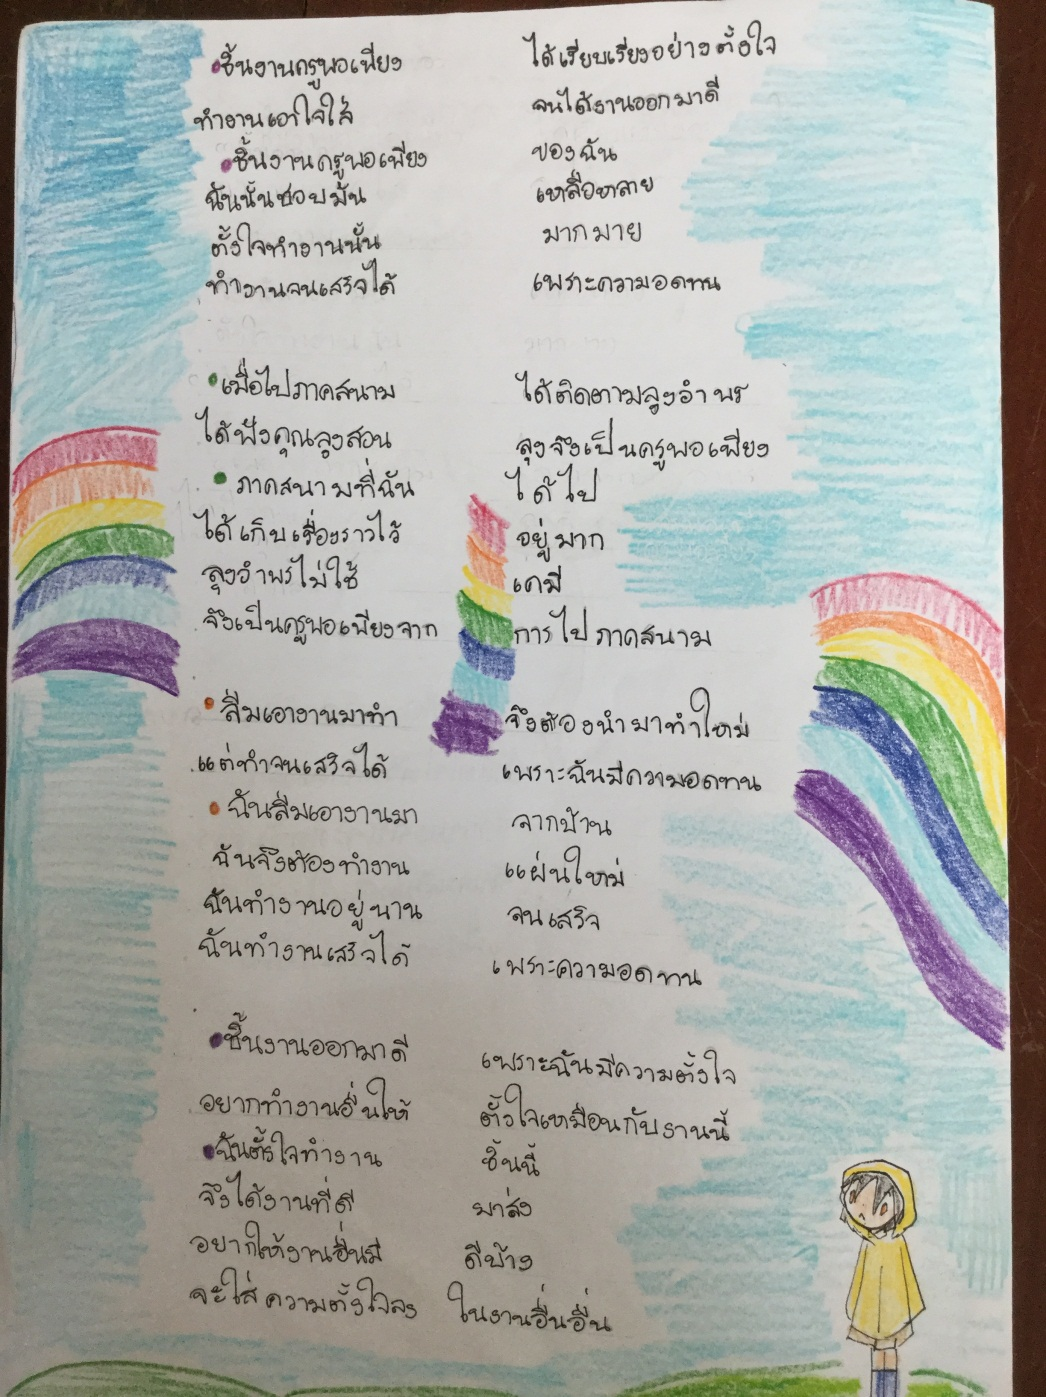 ชิ้นงานครูพอเพียง ได้เรียบเรียงอย่างตั้งใจ
ทำงานเอาใจใส่ จนได้งานออกมาดี
ชิ้นงานครูพอเพียง ของฉัน
ฉันนั้นชอบมัน เหลือหลาย
ตั้งใจทำงานนั้น มากมาย
ทำงานจนเสร็จได้ เพราะความอดทน
เมื่อไปภาคสนาม ได้ติดตามลุงอำพร
ได้ฟังคุณลุงสอน ลุงจึงเป็นครูพอเพียง
ภาคสนามที่ฉัน ได้ไป
ได้เก็บเรื่องราวไว้ อยู่มาก
ลุงอำพรไม่ใช้ เคมี
จึงเป็นครูพอเพียงจาก การไปภาคสนาม
ลืมเอางานมาทำ จึงต้องนำมาทำใหม่
แต่ทำจนเสร็จได้ เพราะฉันมีความอดทน
ฉันลืมเอางานมา จากบ้าน
ฉันจึงต้องทำงาน แผ่นใหม่
ฉันทำงานอยู่นาน จนเสร็จ
ฉันทำงานเสร็จได้ เพราะความอดทน
ชิ้นงานออกมาดี เพราะฉันมีความตั้งใจ
อยากทำงานอื่นให้ ตั้งใจเหมือนกับงานนี้
ฉันตั้งใจทำงาน ชิ้นนี้
จึงได้งานที่ดี มาส่ง
อยากให้งานอื่นมี ดีบ้าง
จะใส่ความตั้งใจลง ในงานอื่นอื่น